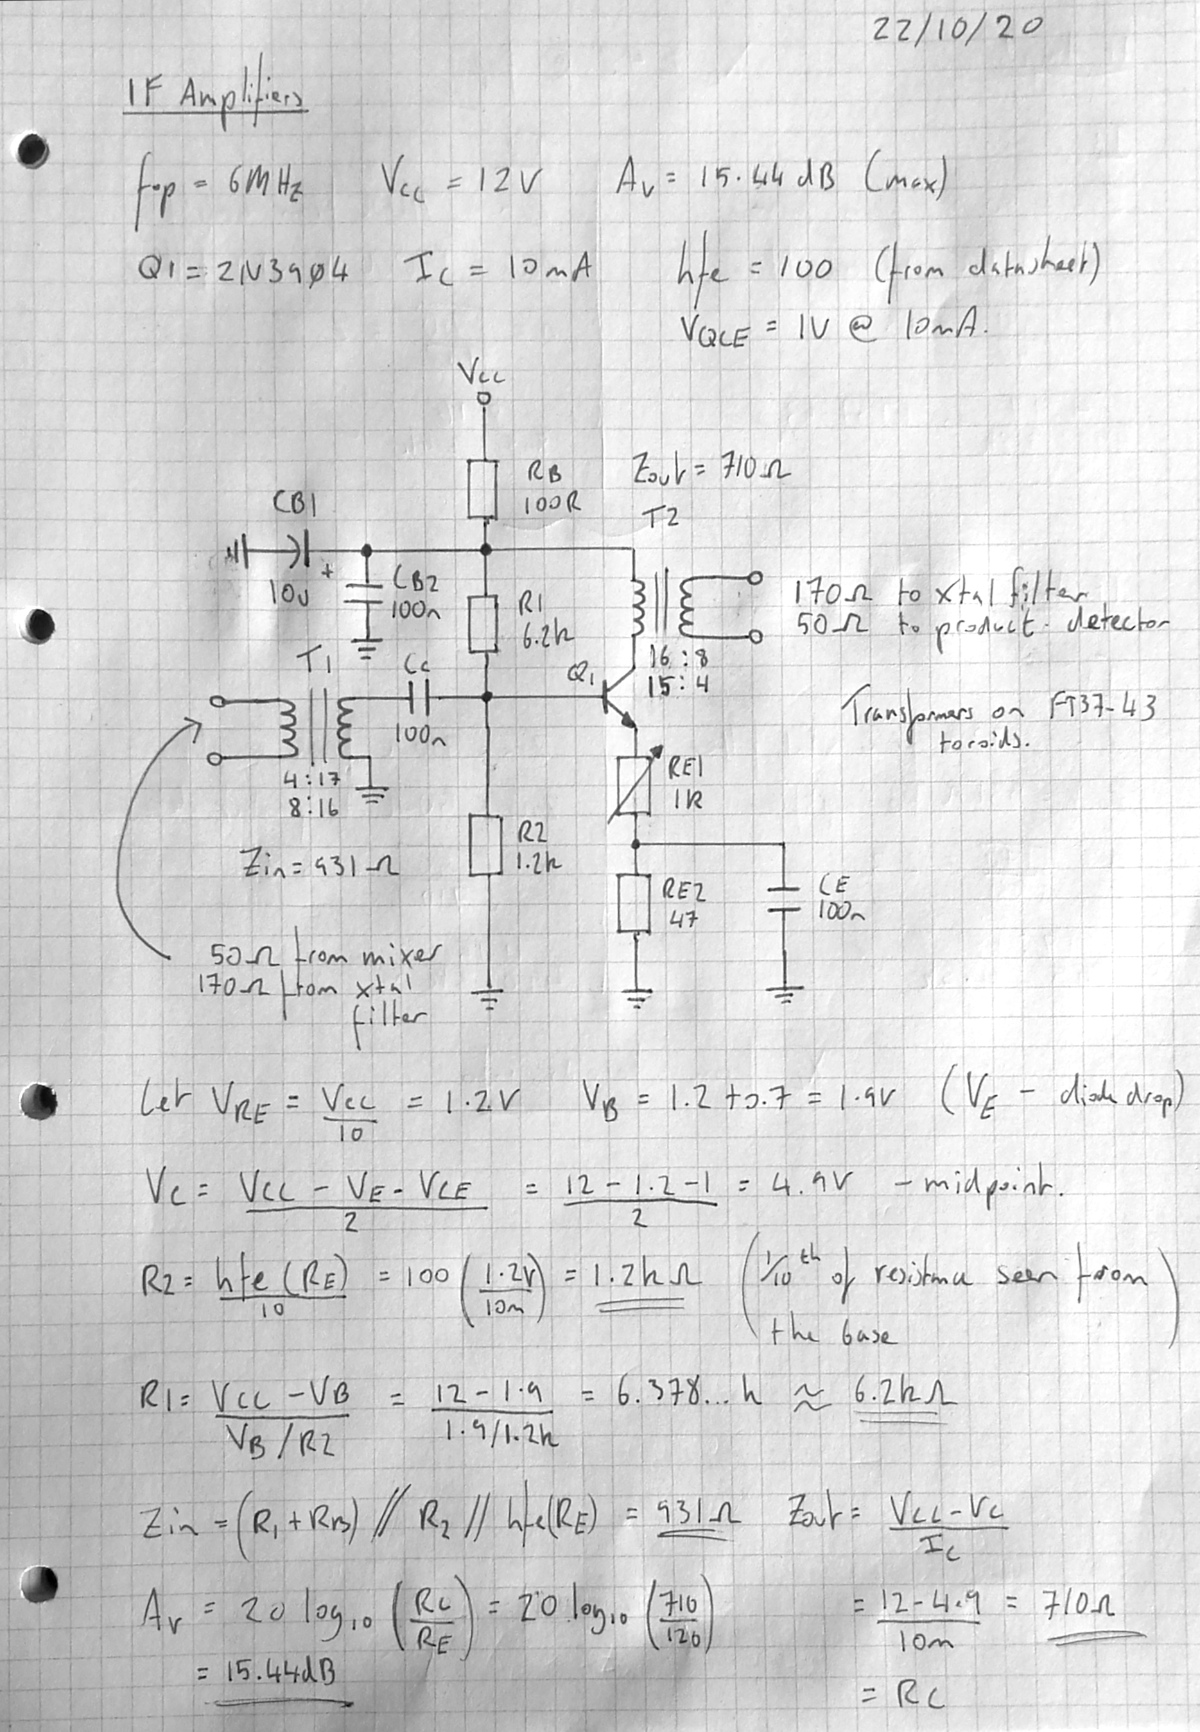 22/10/20
IF Amplifiers
fop = 6MHz Vcc = 12V Av = 15.44dB (max)
Q1 = 2N39Ø4 Ic = 10mA hfe = 100 (from datasheet)
VQCE = 1V @ 10mA.
Vcc
RB
100R
Zout = 710Ω
T2
CB1
+
10u
CB2
100n
R1
6.2k
170Ω to xtal filter
50Ω to product detector
T1
Cc
100n
Q1
16:8
15:4
Transformers on FT37-43
toroids.
4:17
8:16
RE1
1k
Zin = 931Ω
R2
1.2k
RE2
47
CE
100n
50Ω from mixer
170Ω from xtal
filter
Let VRE = Vcc/10 = 1.2V VB = 1.2+0.7 = 1.9V (VE - diode drop)
Vc = (Vcc - VE - VCE)/2 = (12-1.2-1)/2 = 4.9V - midpoint.
R2 = hfe(RE)/10 = 100(1.2V/10m) = 1.2kΩ (1/10th of resistance seen from
the base)
R1 = (Vcc - VB)/(VB/R2) = (12-1.9)/(1.9/1.2k) = 6.378...k ≈ 6.2kΩ
Zin = (R1+RB) // R2 // hfe(RE) = 931Ω Zout = (Vcc-Vc)/Ic
Av = 20 log10 (Rc/RE) = 20 log10 (710/120) = (12-4.9)/10m = 710Ω
= 15.44dB
= Rc